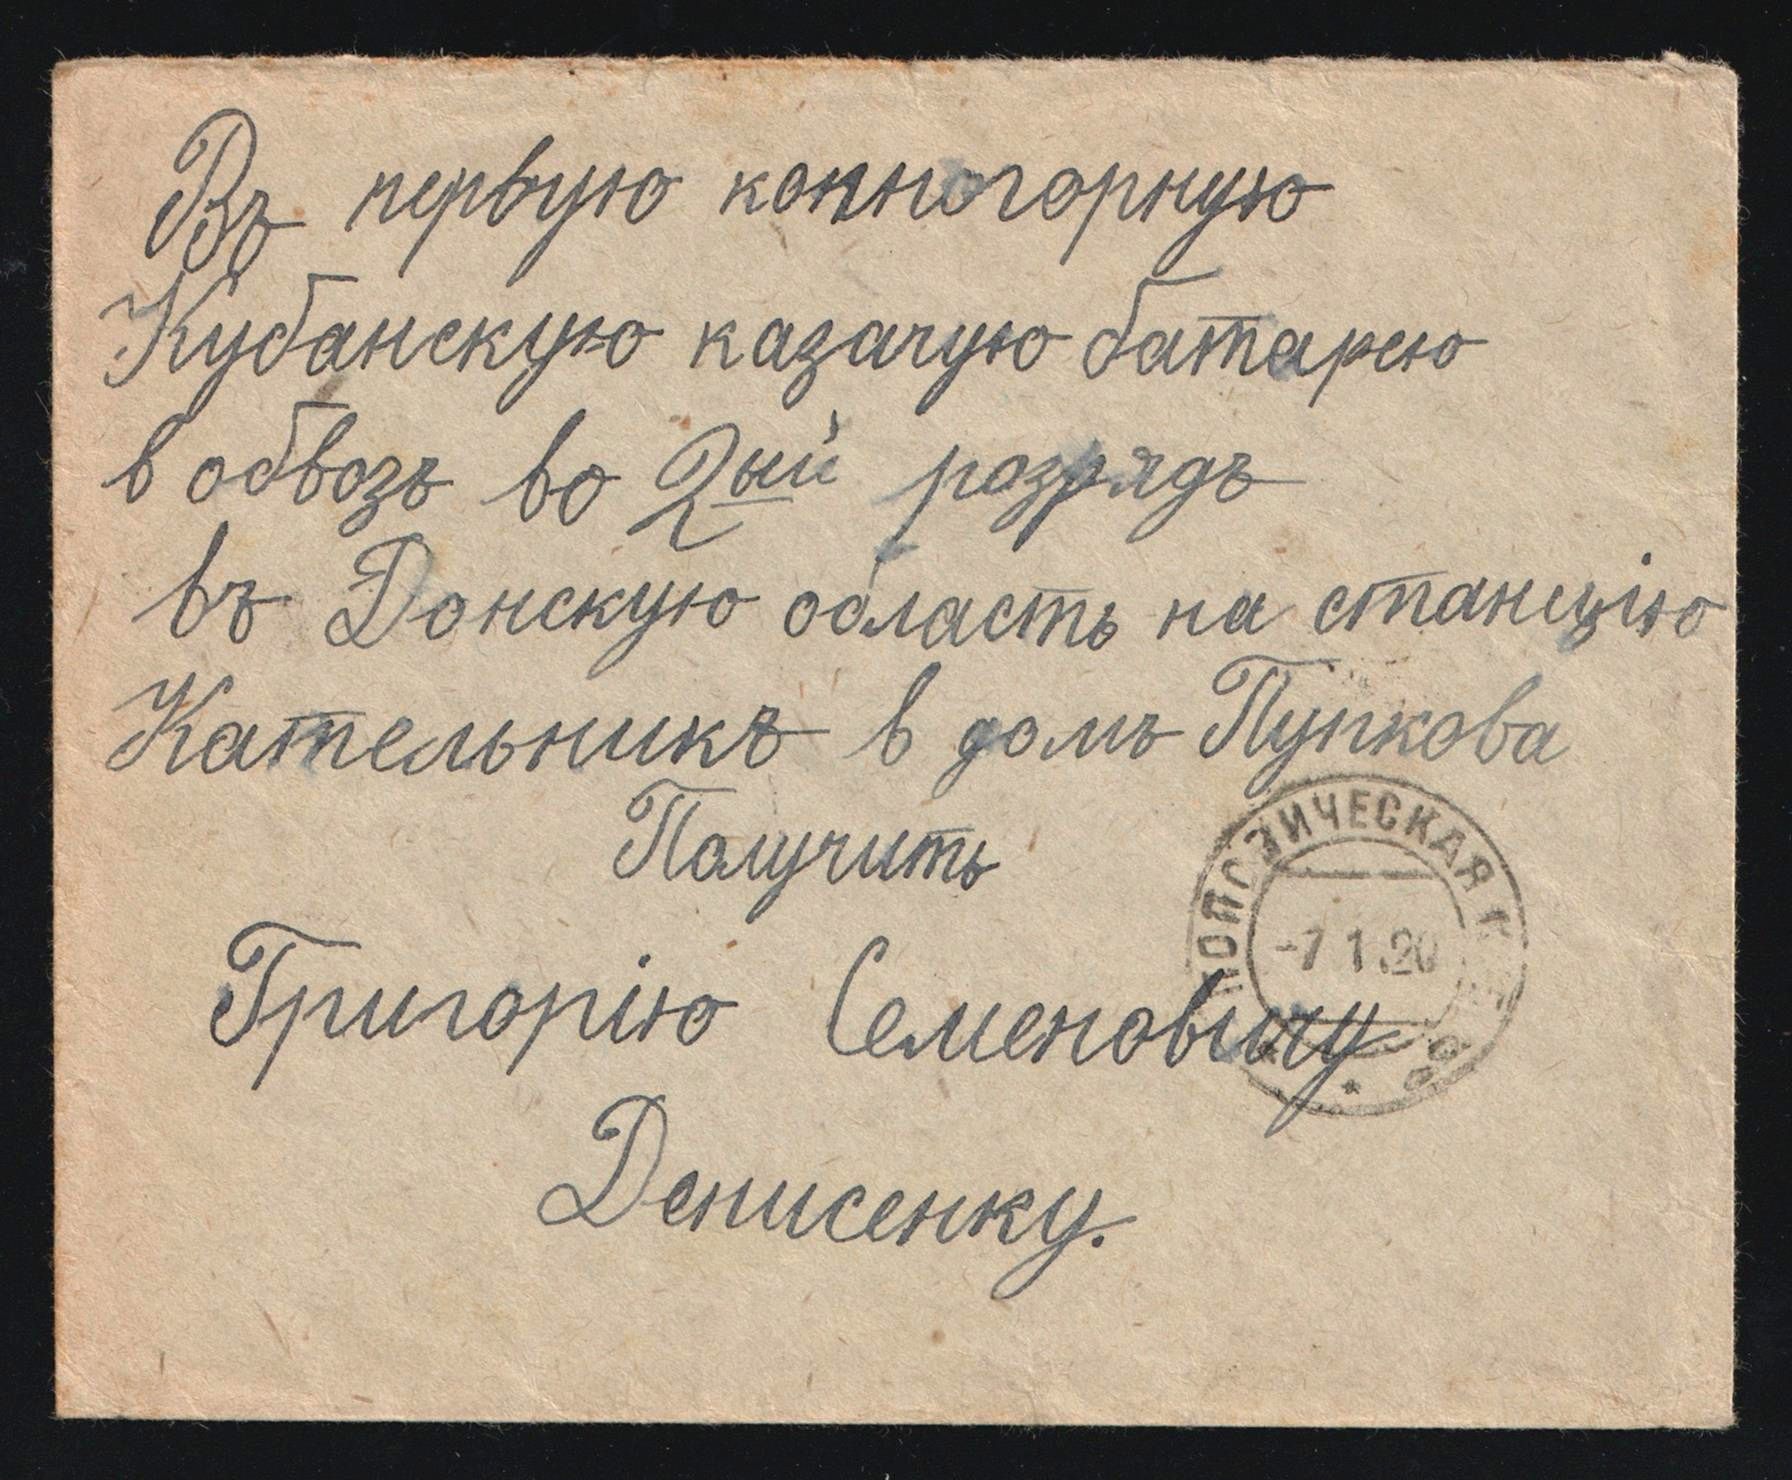 Въ первую конногорную
Кубанскую казачую батарею
в обвозъ во 2ый разрядъ
въ Донскую область на станцію
Кательникъ в домъ Пупкова
Получить
Григорію Семеновичу
Денисенку.
-7 1.20